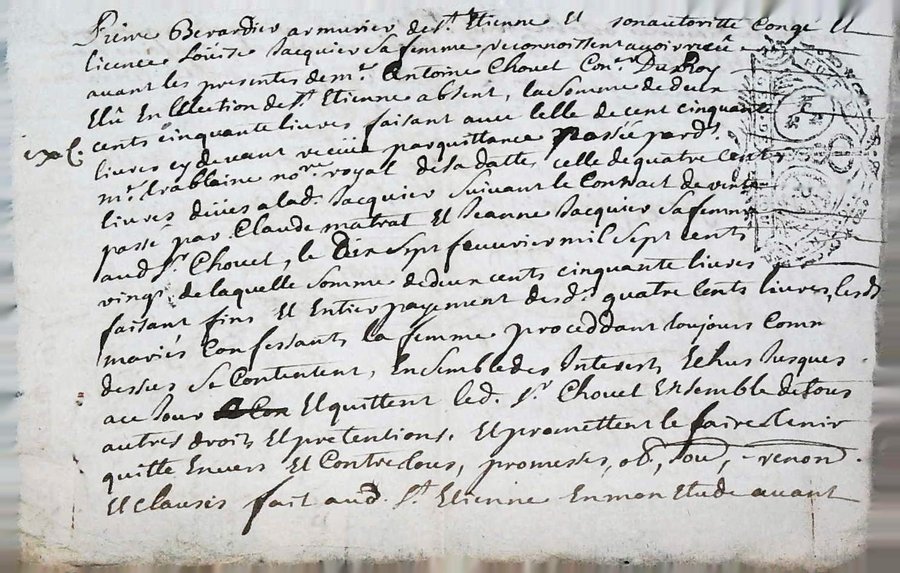 Pierre Berardier armurier de St. Etienne Et sonautoritte Congé Et
licence Loüise Jacquier Sa femme, reconnoissent avoir receü
avant les presentes de mr. Antoine Chovet Conr. Du Roy
Elû En lElection de St. Etienne absent, la Somme de deux
cents cinquante livres faisant avec Celle de cent cinquante
livres cy devant receüe par quittance passée pard.
mr. trablaine nore. royal de sa datte, celle de quatre Cents
livres deües a lad. Jacquier Suivant le Contract de vente
passé par Claude matrat Et Jeanne Jacquier Sa femme
aud Sr. Chovet, le Dix Sept fevurier mil Sept cents
vingt de laquelle Somme de deux cents cinquante livres
faisant fins Et Entier payement des d. quatre Cents livres, les d.
mariés Confessants la femme proceddant toujours Comm
dessus Se Contentent, Ensemble des Interest Echus Jusques
ace Jour Et quittent led. Sr. Chovet Ensemble de tous
autres droits Et pretentions, Et promettent le faire tenir
quitte Envers Et Contre tous, promesses, ob, sou, renon
Et Clauses fait aud. St. Etienne En mon Etude avant